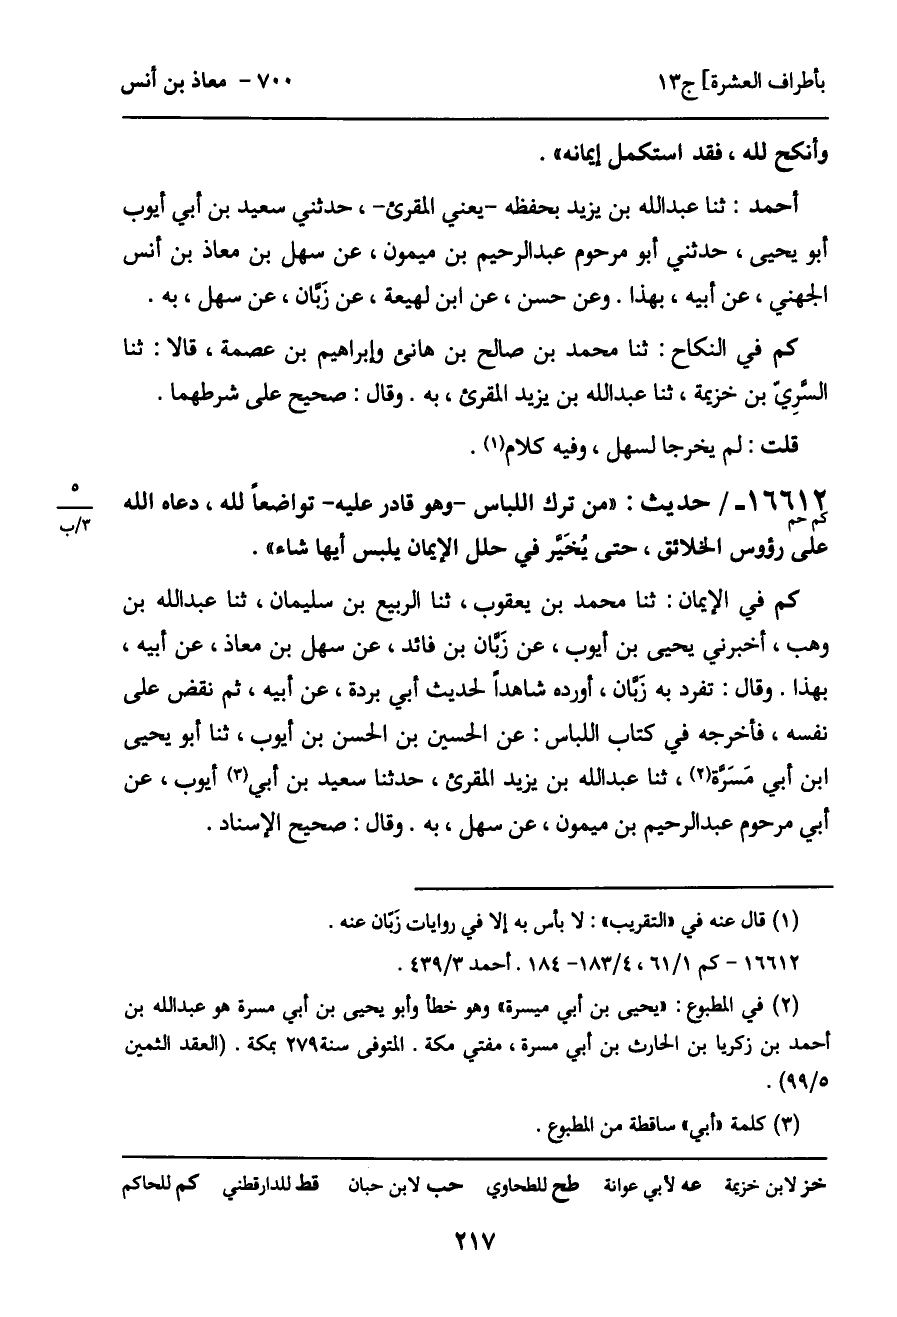 بأطراف العشرة] ج١٣
٧٠٠ - معاذ بن أنس
وأنكح لله ، فقد استكمل إيمانه» .
أحمد : ثنا عبدالله بن يزيد بحفظه -يعني المقرئ- ، حدثني سعيد بن أبي أيوب
أبو يحيى ، حدثني أبو مرحوم عبدالرحيم بن ميمون ، عن سهل بن معاذ بن أنس
الجهني ، عن أبيه ، بهذا . وعن حسن ، عن ابن لهيعة ، عن زَبَّان ، عن سهل ، به .
كم في النكاح : ثنا محمد بن صالح بن هانئ وإبراهيم بن عصمة ، قالا : ثنا
السَّرِيّ بن خزيمة ، ثنا عبدالله بن يزيد المقرئ ، به . وقال : صحيح على شرطهما .
قلت : لم يخرجا لسهل ، وفيه كلام(١) .
١٦٦١٢ـ / حديث : «من ترك اللباس -وهو قادر عليه- تواضعاً لله ، دعاه الله
كم حم
٥
٣/ب
على رؤوس الخلائق ، حتى يُخَيَّر في حلل الإيمان يلبس أيها شاء» .
كم في الإيمان : ثنا محمد بن يعقوب ، ثنا الربيع بن سليمان ، ثنا عبدالله بن
وهب ، أخبرني يحيى بن أيوب ، عن زَبَّان بن فائد ، عن سهل بن معاذ ، عن أبيه ،
بهذا . وقال : تفرد به زَبَّان ، أورده شاهداً لحديث أبي بردة ، عن أبيه ، ثم نقض على
نفسه ، فأخرجه في كتاب اللباس : عن الحسين بن الحسن بن أيوب ، ثنا أبو يحيى
ابن أبي مَسَرَّة(٢) ، ثنا عبدالله بن يزيد المقرئ ، حدثنا سعيد بن أبي(٣) أيوب ، عن
أبي مرحوم عبدالرحيم بن ميمون ، عن سهل ، به . وقال : صحيح الإسناد .
(١) قال عنه في «التقريب» : لا بأس به إلا في روايات زَبَّان عنه .
١٦٦١٢ - كم ٦١/١ ، ١٨٣/٤- ١٨٤ . أحمد ٤٣٩/٣ .
(٢) في المطبوع : «يحيى بن أبي ميسرة» وهو خطأ وأبو يحيى بن أبي مسرة هو عبدالله بن
أحمد بن زكريا بن الحارث بن أبي مسرة ، مفتي مكة . المتوفى سنة٢٧٩ بمكة . (العقد الثمين
٩٩/٥) .
(٣) كلمة «أبي» ساقطة من المطبوع .
خز لابن خزيمة عه لأبي عوانة طح للطحاوي حب لابن حبان قط للدارقطني كم للحاكم
٢١٧